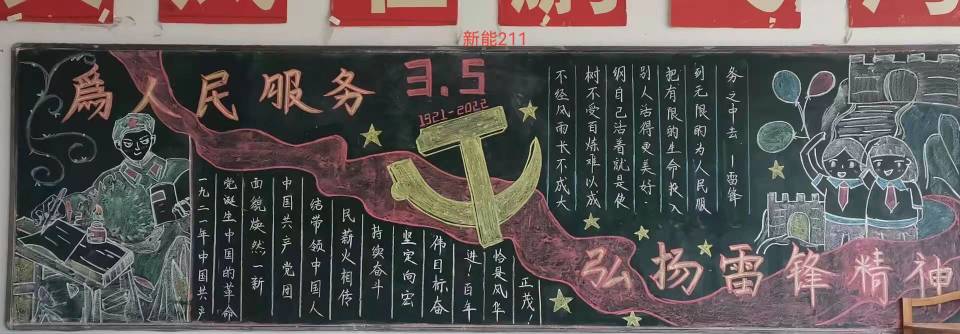 新能211
爲人民服务
3.5
1921-2022
一九二一年中国共产
党诞生中国的革命
面貌焕然一新
中国共产党团
结带领中国人
民薪火相传
持续奋斗
坚定向宏
伟目标奋
进!百年
恰是风华
正茂!
不经风雨长不成大
树不受百炼难以成
纲自己活着就是使
别人活得更美好.
把有限的生命投入
到无限的为人民服
务之中去 —雷锋
弘扬雷锋精神